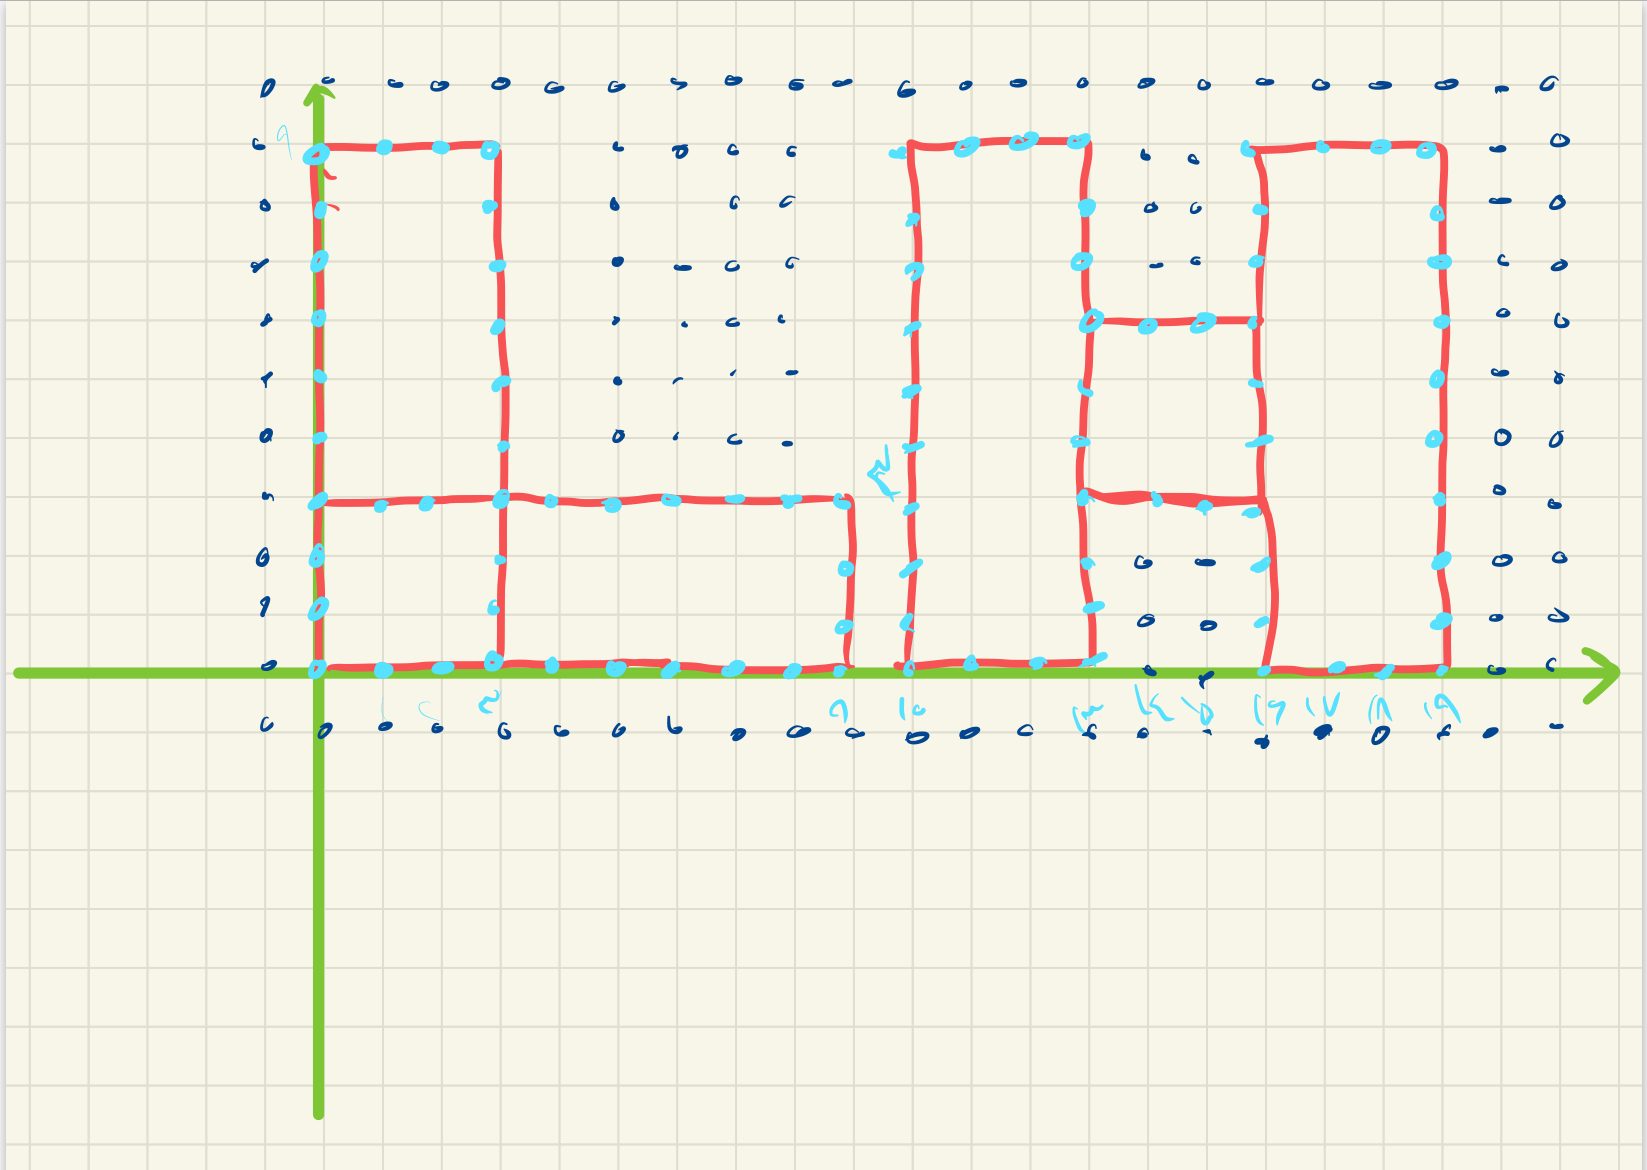 ۹
۱ ۲ ۳ ۹ ۱۰ ۱۳ ۱۴ ۱۵ ۱۶ ۱۷ ۱۸ ۱۹